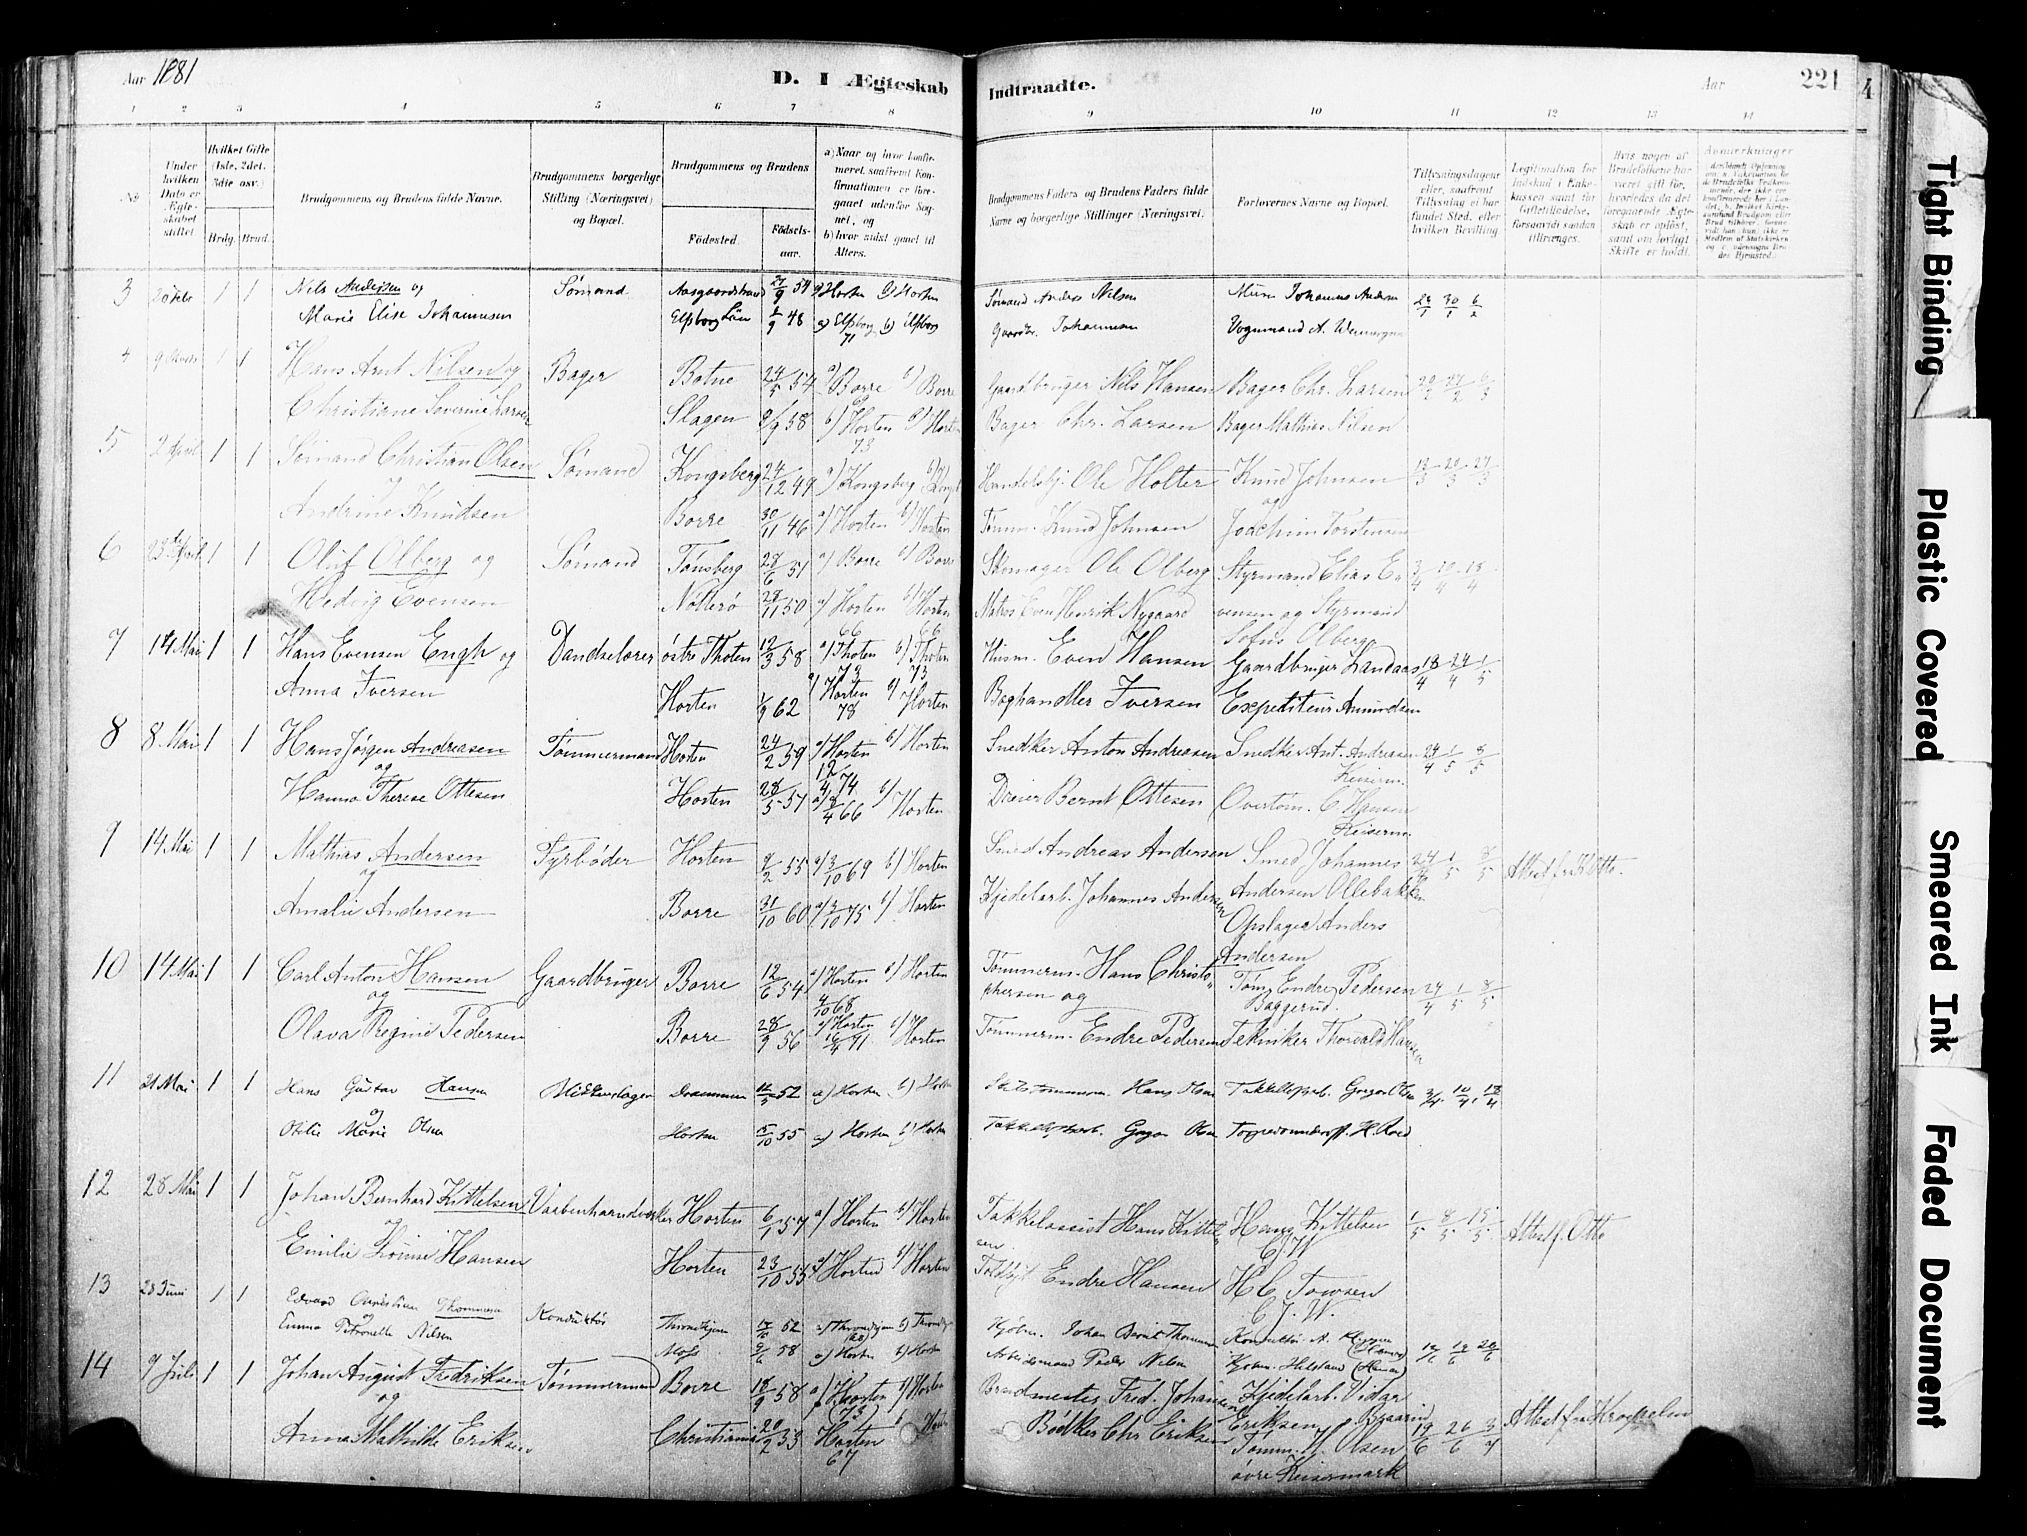 Aar 1881
D. I Ægteskab
Indtraadte.
Aar
221
4
1 2 3 4 5 6 7 8 9 10 11 12 13 14
No
Under hvilken Dato er Ægteskabet stiftet
Hvilket Gifte (1ste, 2det, 3die osv.)
Brdg.
Brud.
Brudgommens og Brudens fulde Navne.
Brudgommens borgerlige Stilling (Næringsvei) og Bopæl.
Brudgommens og Brudens
Födested.
Födselsaar.
a) Naar og hvor konfirmeret, saafremt Konfirmationen er foregaaet udenfor Sognet, og
b) hvor sidst gaaet til Alters.
Brudgommens Faders og Brudens Faders fulde Navne og borgerlige Stillinger (Næringsvei).
Forlovernes Navne og Bopæl.
Tillysningsdagene eller, saafremt Tillysning ei har fundet Sted, efter hvilken Bevilling
Legitimation for Indskud i Enkekassen samt for Giftetilladelse, forsaavidt saadan tiltrænges.
Hvis nogen af Brudefolkene har været gift før, hvorledes da det foregaaende Ægteskab er opløst, samt om lovligt Skifte er holdt.
Anmærkninger
3 1 1 Nils Andersen og Sömand Aasgaardstrand 54 a) Horten b) Horten Sömand Anders Nilsen Johannes Andersen
Marie Elise Johannesen Elfsborg Län 48 a) Elfsborg b) Elfsborg 71 Johannesen
4 9 1 1 Hans Arnt Nilsen og Bager Botne 24/5 54 a) Borre b) Borre Gaardbruger Nils Hansen Bager Chr. Larsen
Christiane Severine Larsen Slagen 9/9 58 a) Horten b) Horten 73 Bager Chr. Larsen Bager Mathias Nilsen
5 2 April 1 1 Sömand Christian Olsen Sömand Kongsberg 24/12 49 a) Kongsberg Ole Holter Knud Johnsen 13/3 20/3 27/3
og
Andrine Knudsen Borre 30/11 46 a) Horten b) Horten Tömm. Knud Johnsen og Joachim Torstensen
6 23 April 1 1 Oluf Olberg og Sömand Tönsberg 28/6 51 a) Borre b) Borre Skomager Ole Olberg Styrmand Elias E- 3/4 10/4 18/4
Hedvig Evensen Nötterö 28/11 50 a) Horten b) Horten 66 66 Matros Even Henrik Nygaard vensen og Styrmand
Sofus Olberg
7 14 Mai 1 1 Hans Evensen Engh og Dandselærer östre Thoten 12/3 58 a) Thoten b) Thoten 73 73 Husm. Even Hansen Gaardbruger Landaas 18/4 24/4 1/5
Anna Iversen Horten 1/9 62 a) Horten b) Horten 78 Boghandler Iversen Expediteur Amundsen
8 8 Mai 1 1 Hans Jörgen Andreasen Tömmermand Horten 24/2 59 a) Horten b) Horten 12/4 74 Snedker Anton Andreasen Snedker Ant. Andreasen 24/4 1/5 8/5
og Keiserm.
Hanna Therese Ottesen Horten 28/5 57 a) 8/4 66 b) Horten Dreier Bernt Ottesen Overtöm. C. Hansen
Keiserm.
9 14 Mai 1 1 Mathias Andersen Fyrböder Horten 9/2 55 a) 3/10 69 b) Horten Smed Andreas Andersen Smed Johannes 24/4 1/5 8/5 Attest fra Otto.
og
Amalie Andersen Borre 31/10 60 a) 3/10 75 b) Horten Kjedelarb. Johannes Andersen Andersen Ollebakken
Opslager Anders
Andersen
10 14 Mai 1 1 Carl Anton Hansen Gaardbruger Borre 12/6 54 a) Horten b) Horten 4/10 68 Tömmerm. Hans Christophersen og Töm. Endre Pedersen 24/4 1/5 8/5
og Baggerud.
Olava Regine Pedersen Borre 28/9 56 a) Horten b) Horten 16/4 71 Tömmerm. Endre Pedersen Tekniker Thorvald Hansen
11 21 Mai 1 1 Hans Gustav Hansen Drammen 52 a) Horten b) Horten Hans Takkelloparb. Gregar Olsen 3/4 10/4 18/4
og
Otilie Marie Olsen Horten 15/10 55 a) Horten b) Horten Gregar Olsen H. Roed
12 28 Mai 1 1 Johan Bernhard Kittelsen Vaabenhaandverker Horten 6/1 57 a) Horten b) Horten Takkelassist Hans Kittelsen Hans Kittelsen 1/5 8/5 15/5 Attest f. Otto
og C.J.W.
Emilie Lovise Hansen Horten 23/10 55 a) Horten b) Horten Endre Hansen H C Towsen
C.J.W.
13 28 Juni 1 1 Edvard Christian Thommesen Konduktör Throndhjem 52 a) Throndhjem b) Throndhjem Kjöbm. Johan Bernt Thommesen Konduktör A. 12/6 19/6 26/6
og
Emma Petronelle Nilsen Moss 58 a) Horten b) Horten Arbeidsmand Peder Nilsen Kjöbm.
14 9 Juli 1 1 Johan August Fredriksen Tömmermand Borre 18/9 58 a) Horten b) Horten (73) Brandmester Fred. Johansen Kjedelarb. Vidar
og Eriksen, Braarud 19/6 26/6 3/7 Attest fra
Anna Mathilde Eriksen Christiania 20/2 53 Horten 67 Bödker Chr Eriksen Tömm. H. Olsen
övre Keisermark
Tight Binding
Plastic Covered
Smeared Ink
Faded Document